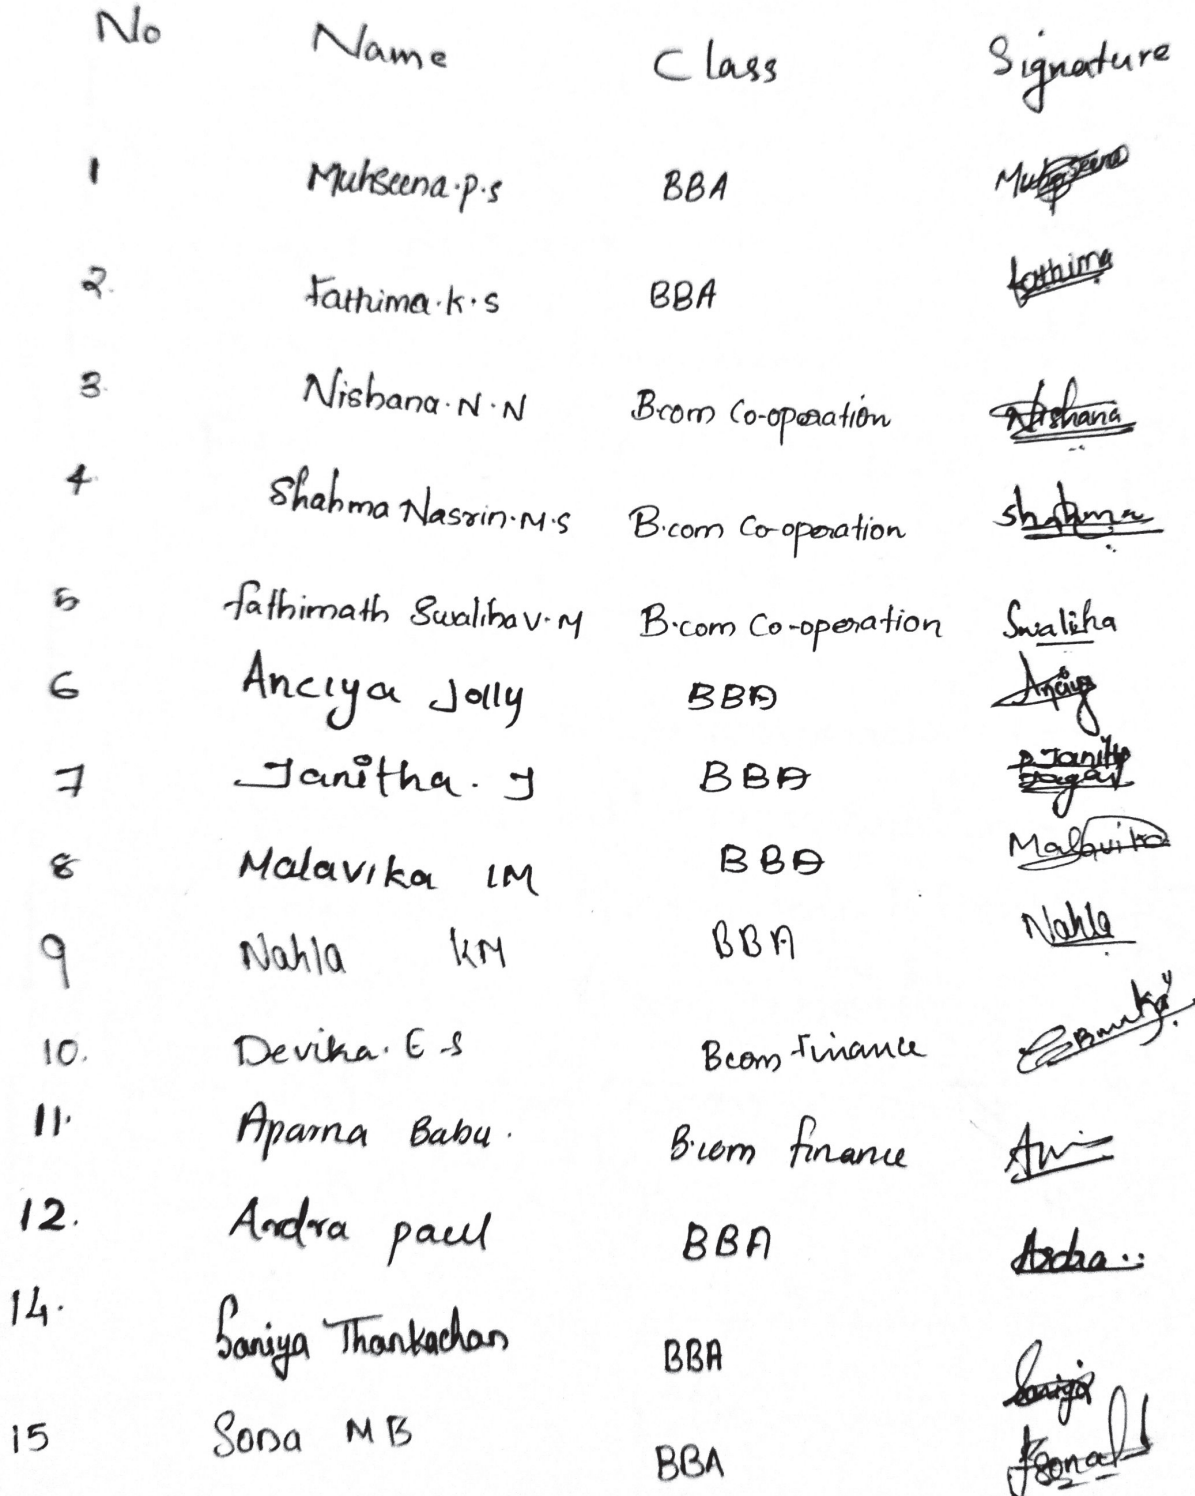 No Name Class Signature
1 Muhseena.P.S BBA Muhseena
2. Fathima.K.S BBA fathima
3. Nishana.N.N B.com Co-operation Nishana
4. Shahma Nasrin.M.S B.com Co-operation Shahma
5 fathimath Swaliha V.M B.com Co-operation Swaliha
6 Anciya Jolly BBA Anciya
7 Janitha. J BBA Janitha
8 Malavika LM BBA Malavika
9 Nahla KM BBA Nahla
10. Devika. E S Bcom Finance
11. Aparna Babu. B.com finance
12. Andra paul BBA
14. Saniya Thankachan BBA Saniya
15 Sona MB BBA Sona